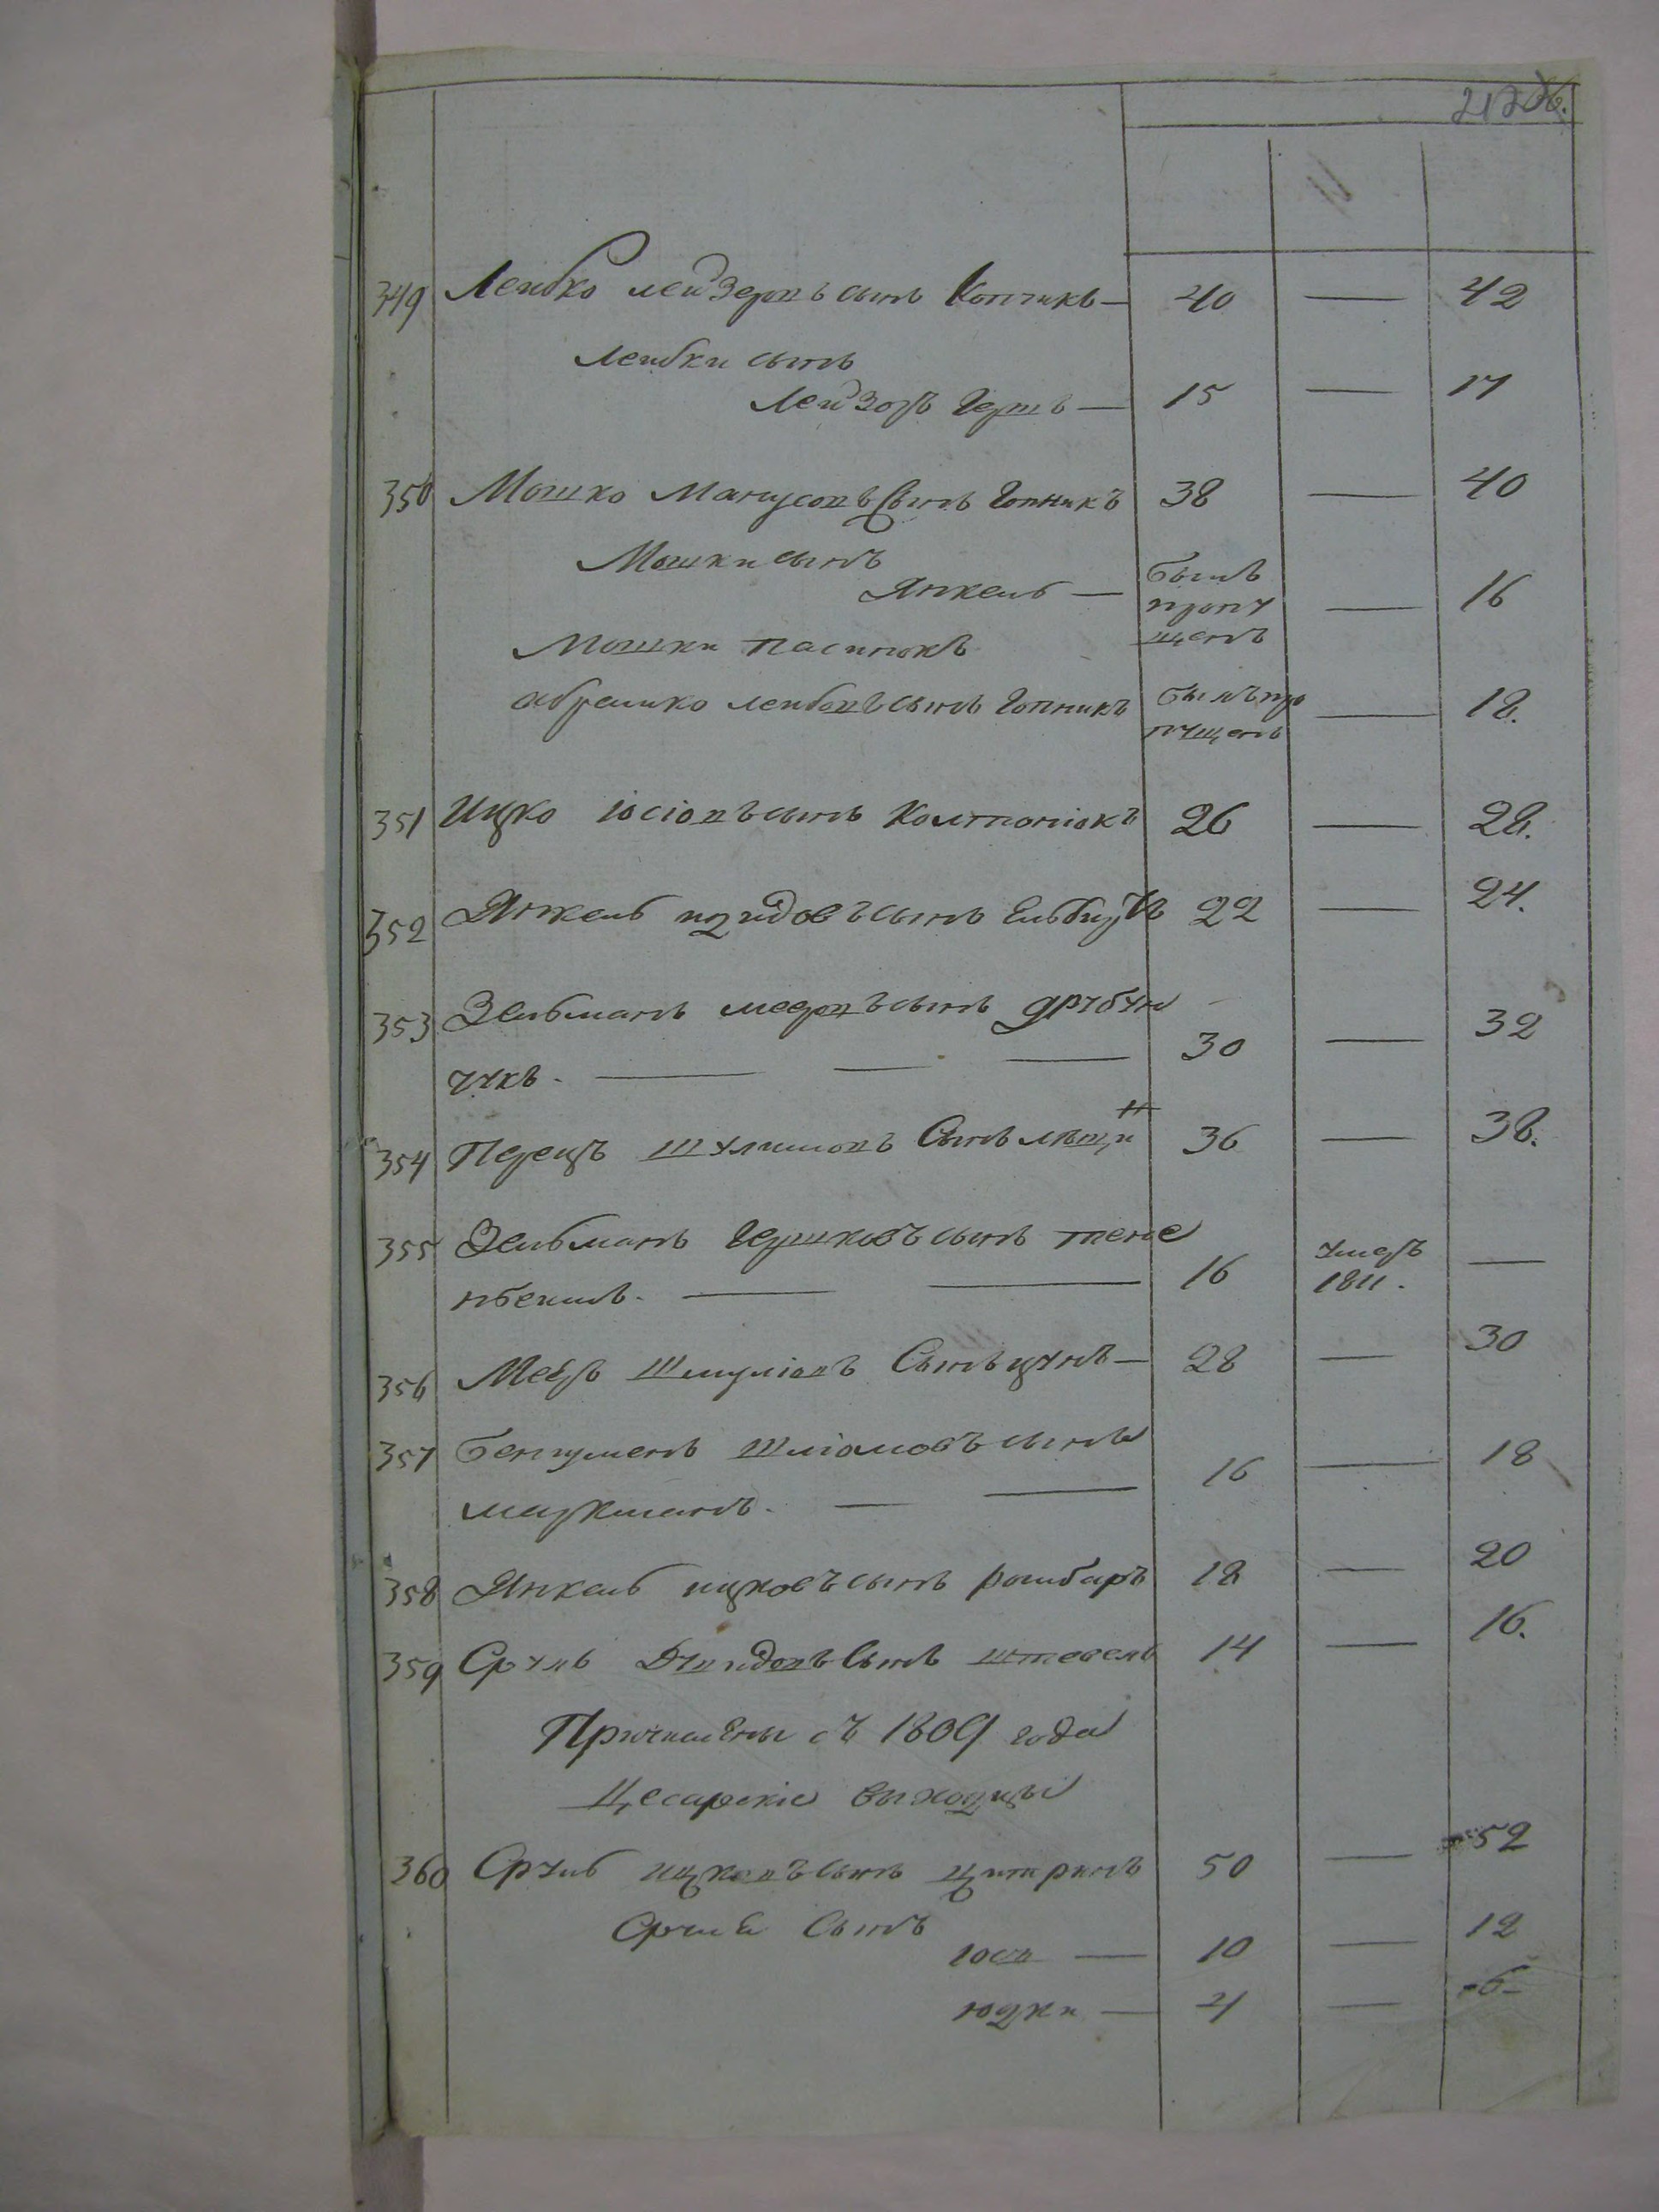 349 Лейбко лейзеровъ сынъ Копчикъ — 40 — 42
Лейбки сынъ
Лейзоръ Гершъ — 15 — 17
350 Мошко Манусовъ Сынъ Гопникъ 38 — 40
Мошки сынъ
Янкель — былъ пропущенъ — 16
Мошки пасинокъ
абрамко лейбовъ сынъ Гопникъ былъ пропущенъ — 18.
351 Ицко іосіовъ сынъ Колтонюкъ 26 — 28.
352 Янкель сынъ 22 — 24.
353 Зельманъ мееровъ сынъ
чукъ. — — — 30 — 32
354 Перецъ шулимовъ Сынъ 36 — 38.
355 Зельманъ Гершковъ сынъ тене
нбеимъ. — — 16 умеръ 1811. —
356 Мееръ Шмуліовъ Сынъ цунъ — 28 — 30
357 Бенцуменъ Шліомовъ сынъ
маркманъ. — — 16 — 18
358 Янкель ицковъ сынъ 18 — 20
359 Сруль Дувидовъ Сынъ штевель 14 — 16.
Причислены съ 1809 года
Цесарскіе выходцы
360 Сруль ицковъ сынъ цитринъ 50 — 52
Сруля Сынъ
іосп — 10 — 12
юдки — 4 — 6